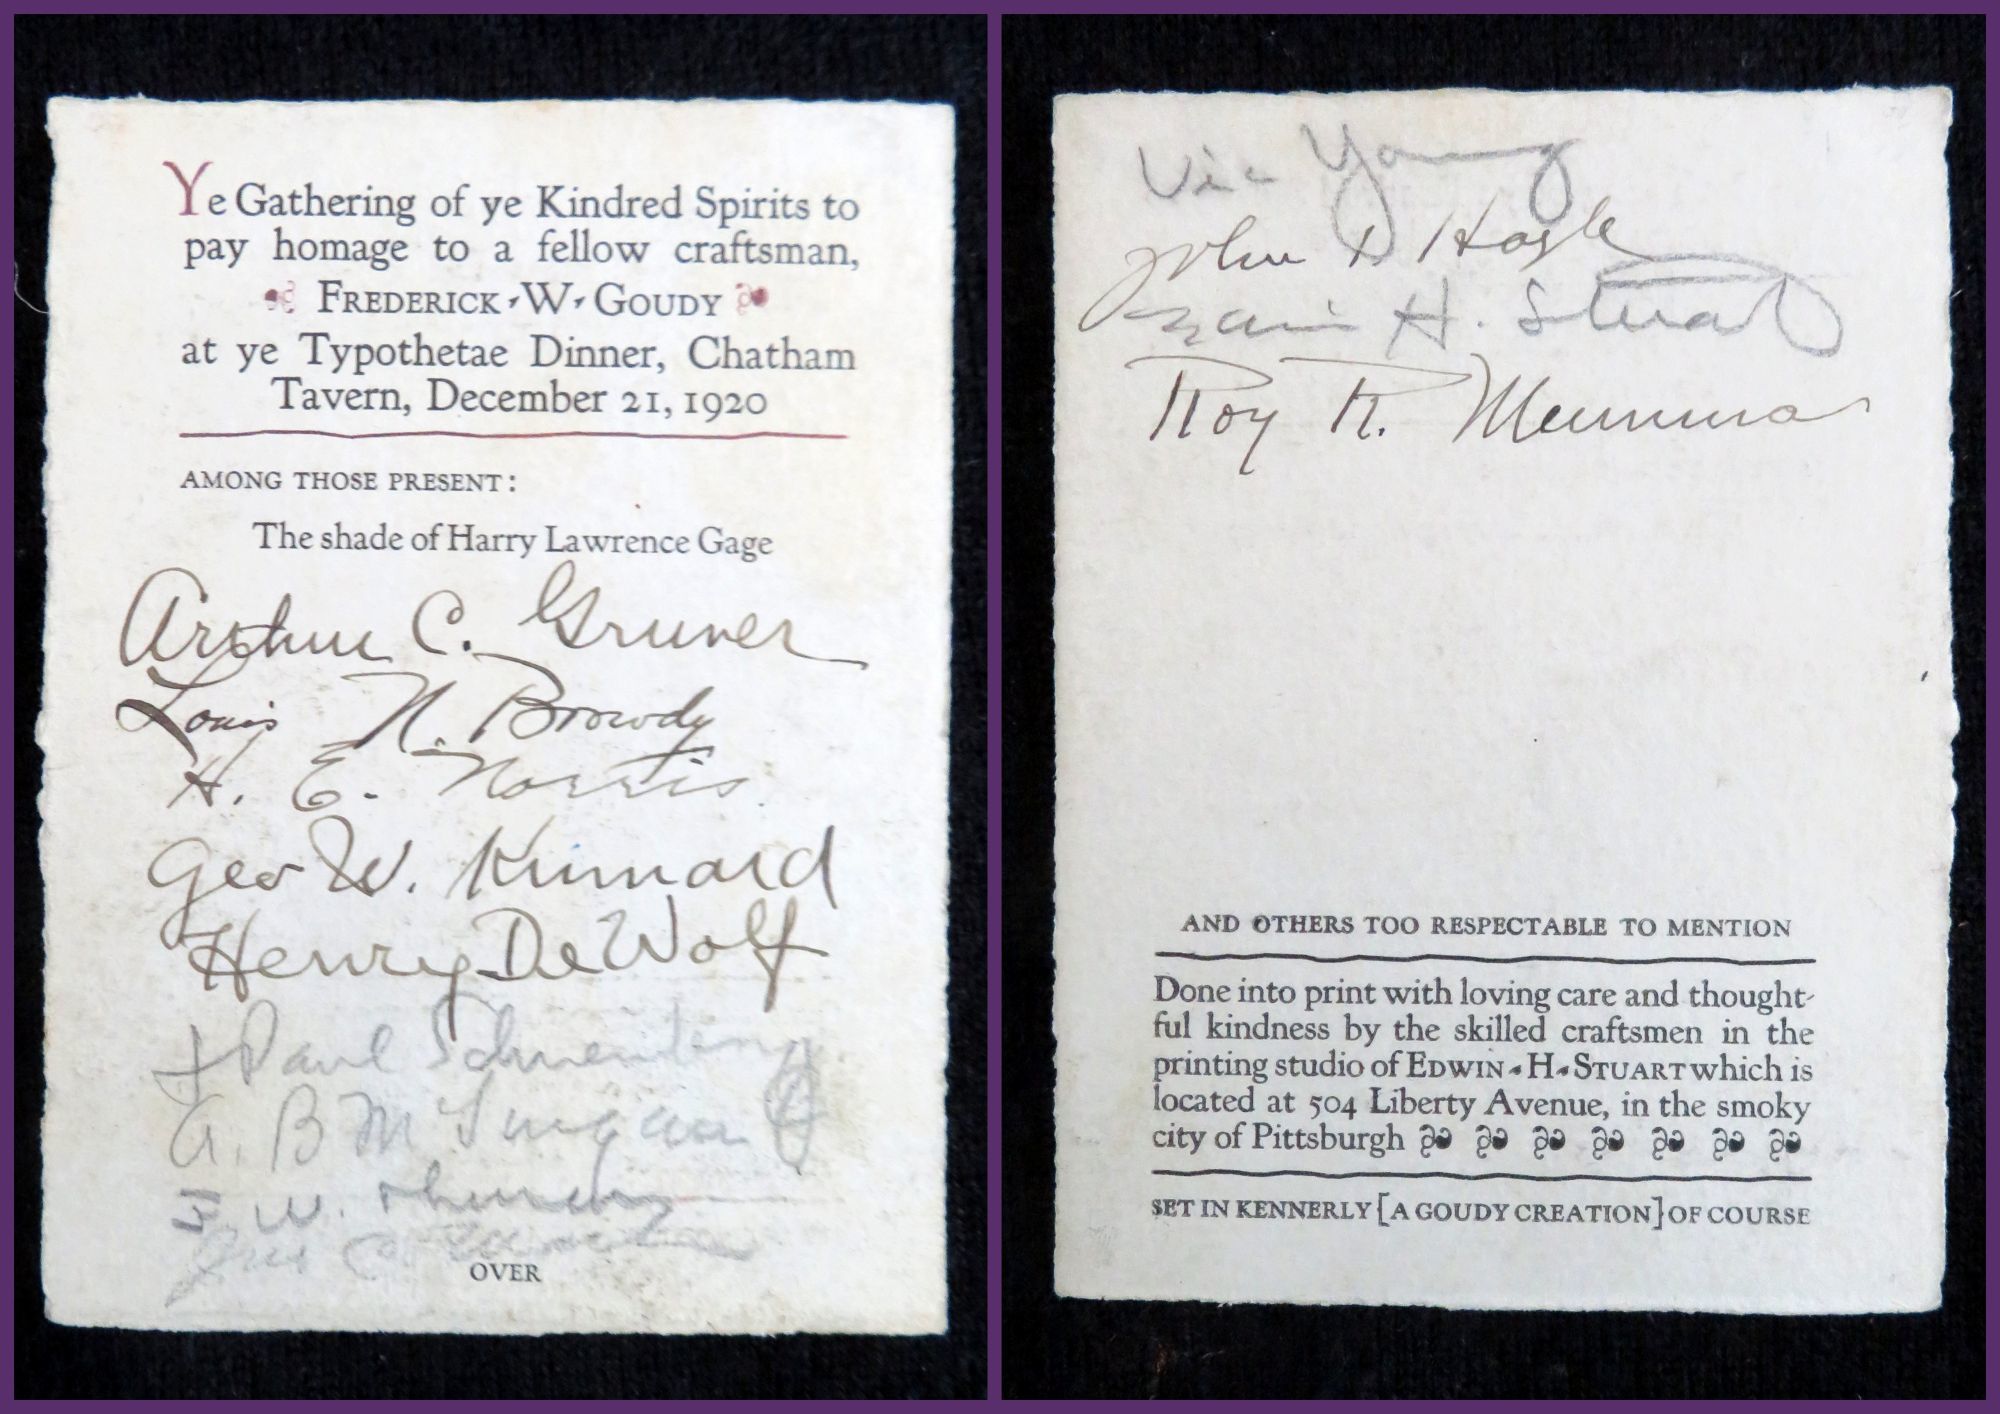 Ye Gathering of ye Kindred Spirits to
pay homage to a fellow craftsman,
FREDERICK W GOUDY
at ye Typothetae Dinner, Chatham
Tavern, December 21, 1920
AMONG THOSE PRESENT:
The shade of Harry Lawrence Gage
Arthur C. Gruver
Louis N. Browdy
H. E. Norris
Geo W. Kinnard
Henry De Wolf
Paul
A. B. M
W.
OVER
Vic Young
John D Hogle
H. Stuart
Roy R. Mumma
AND OTHERS TOO RESPECTABLE TO MENTION
Done into print with loving care and thought-
ful kindness by the skilled craftsmen in the
printing studio of EDWIN H STUART which is
located at 504 Liberty Avenue, in the smoky
city of Pittsburgh
SET IN KENNERLY [A GOUDY CREATION] OF COURSE